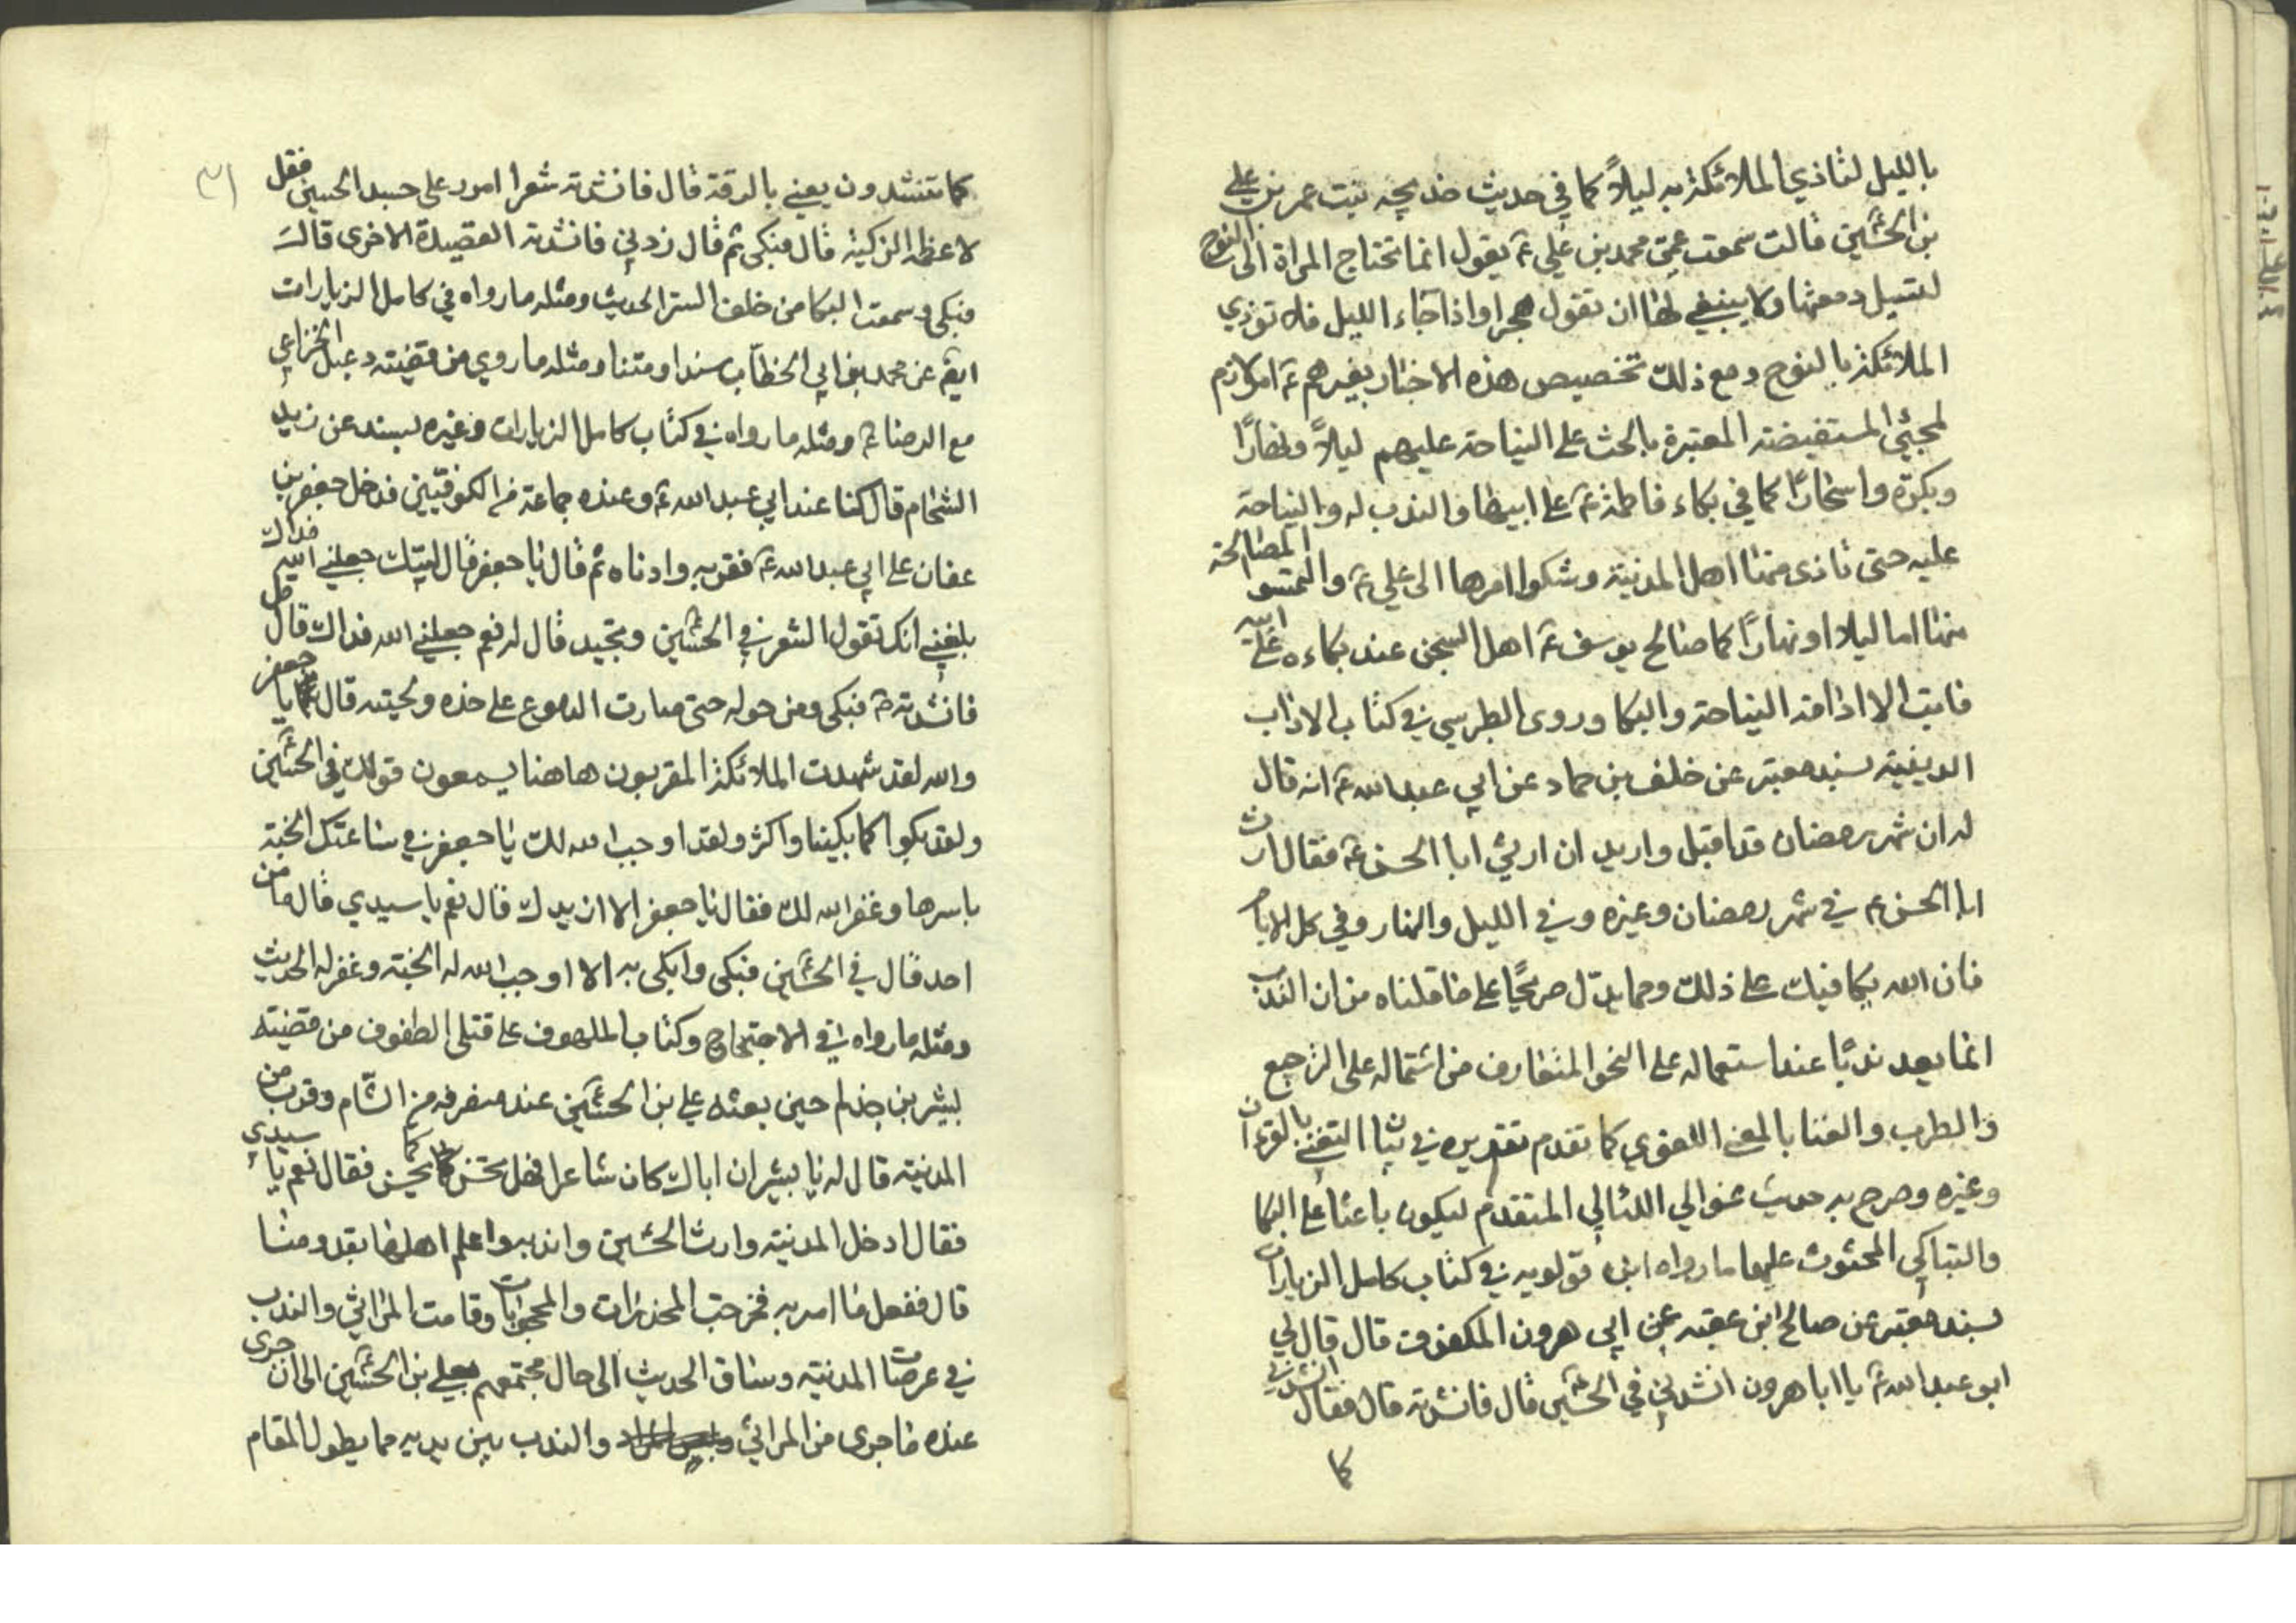 بالليل لتاذي الملائكة به ليلاً كما في حديث خديجه بنت عمر بن علي
بن الحسين قالت سمعت عمي محمد بن علي ع يقول انما تحتاج المراة الى النوح
لتسيل دمعتها ولا ينبغي لها ان تقول هجرا واذا جاء الليل فلا توذي
الملائكة بالنوح ومع ذلك تخصيص هذه الاخبار بغيرهم ع امر لازم
لمجيئ المستفيضة المعتبرة بالحث على النياحة عليهم ليلاً ونهارًا
وبكرة واسحارًا كما في بكاء فاطمة ع على ابيها والندب له والنياحة
عليه حتى تاذى منها اهل المدينة وشكوا امرها الى علي ع والتمسوا المصالحة
منها اما ليلا او نهارًا كما صالح يوسف ع اهل السجن عند بكاءه على ابيه
فابت الا اذامة النياحة والبكا وروى الطبرسي في كتاب الاداب
الدينية بسند معتبر عن خلف بن حماد عن ابي عبد الله ع انه قال
له ان شهر رمضان قد اقبل واريد ان ارثي ابا الحسن ع فقال ارث
ابا الحسن ع في شهر رمضان وغيره وفي الليل والنهار وفي كل الايام
فان الله يكافيك على ذلك ومما يدل صريحًا على ما قلناه من ان الندب
انما يعد ندبًا عند استعماله على النحو المتعارف من اشتماله على الترجيع
والطرب والغنا بالمعنى اللغوي كما تقدم تقديره في التغني بالقران
وغيره وصرح به حديث غوالي اللئالي المتقدم ليكون باعثا على البكا
والتباكي المحثوث عليهما ما رواه ابن قولويه في كتاب كامل الزيارات
بسند معتبر عن صالح ابن عقبه عن ابي هرون المكفوف قال قال لي
ابو عبد الله ع يا ابا هرون انشدني في الحسين قال فانشدته قال فقال انشدني
كما
٣١
كما تنشدون يعني بالرقة قال فانشدته شعرا امرر على جسد الحسين فقل
لاعظمه الزكية قال فبكى ثم قال زدني فانشدته القصيدة الاخرى قال
فبكى وسمعت البكا من خلف الستر الحديث ومثله ما رواه في كامل الزيارات
ايضا عن محمد بن ابي الخطاب سندا ومتنا ومثله ما روي من قضيته دعبل الخزاعي
مع الرضا ع ومثله ما رواه في كتاب كامل الزيارات وغيره بسند عن زيد
الشحام قال كنا عند ابي عبد الله ع وعنده جماعة من الكوفيين فدخل جعفر بن
عفان على ابي عبد الله ع فقربه وادناه ثم قال يا جعفر قال لبيك جعلني الله فداك
بلغني انك تقول الشعر في الحسين وتجيد قال له نعم جعلني الله فداك قال قل
فانشدته فبكى ومن حوله حتى صارت الدموع على خده ولحيته قال يا جعفر
والله لقد شهدت الملائكة المقربون هاهنا يسمعون قولك في الحسين
ولقد بكوا كما بكينا واكثر ولقد اوجب الله لك يا جعفر في ساعتك الجنة
باسرها وغفر الله لك فقال يا جعفر الا ازيدك قال نعم يا سيدي قال ما من
احد قال في الحسين فبكى وابكى به الا اوجب الله له الجنة وغفر له الحديث
ومثله ما رواه في الاحتجاج وكتاب الملهوف على قتلى الطفوف من قضيته
بشير بن جذلم حين بعثه علي بن الحسين عند منصرفه من الشام وقرب من
المدينة قال له يا بشير ان اباك كان شاعرا فهل تحسن كما يحسن فقال نعم يا سيدي
فقال ادخل المدينة وارث الحسين واندبه واعلم اهلها بقدومنا
قال ففعل ما امر به فخرجت المخدرات والمحجوبات وقامت المراثي والندب
في عرصات المدينة وساق الحديث الى حال مجتمعهم بعلي بن الحسين الى ان جرى
عنده ما جرى من المراثي والندب بين يديه مما يطول المقام